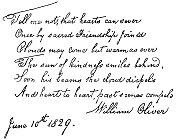 Tell me not that hearts can sever
Once by sacred Friendship joined
Clouds may come but warm as ever
The sun of kindness smiles behind,
Soon his beams the cloud dispels
And heart to heart past's sense compels
William Oliver
June 10th 1829.